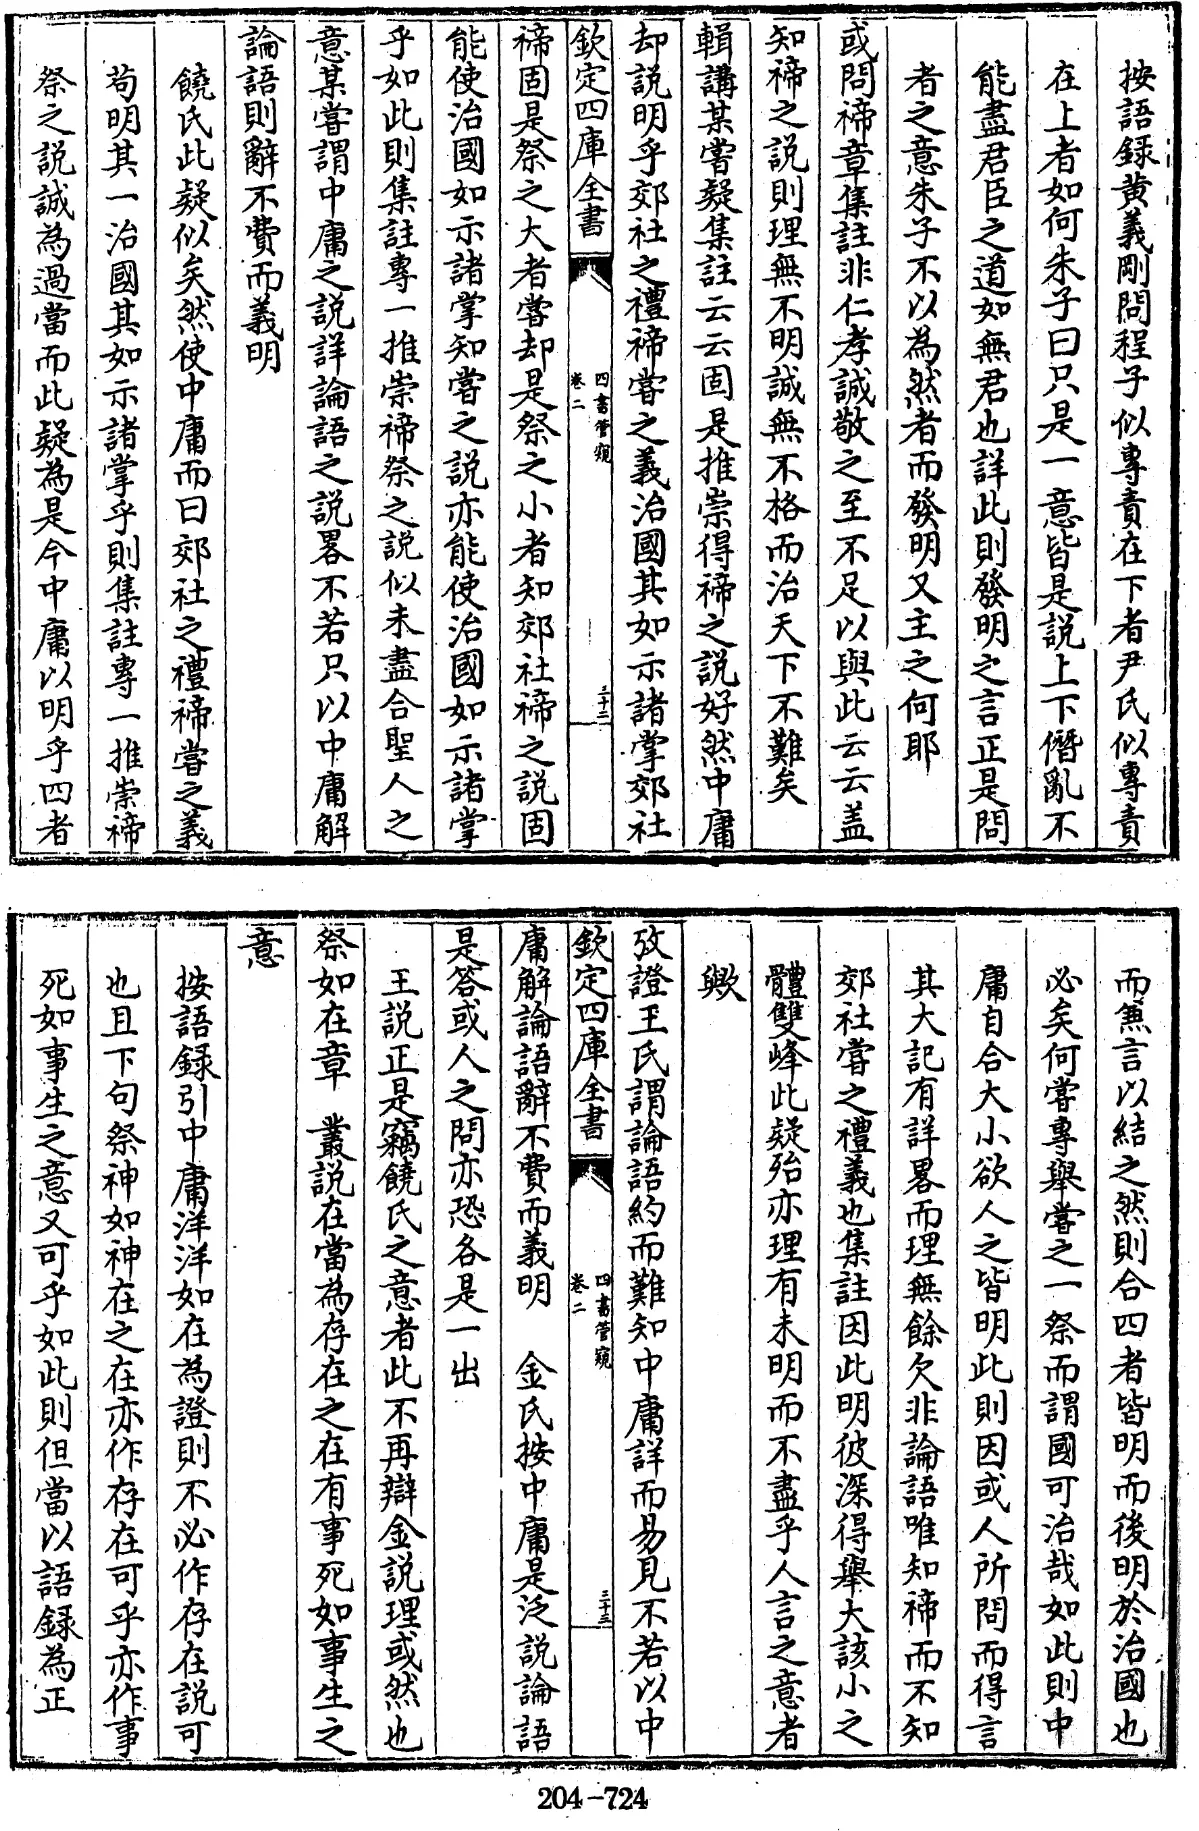 按語録黄義剛問程子似專責在下者尹氏似專責
在上者如何朱子曰只是一意皆是説上下僭亂不
能盡君臣之道如無君也詳此則發明之言正是問
者之意朱子不以為然者而發明又主之何耶
或問禘章集註非仁孝誠敬之至不足以與此云云盖
知禘之説則理無不明誠無不格而治天下不難矣
輯講某嘗疑集註云云固是推崇得禘之説好然中庸
却説明乎郊社之禮禘嘗之義治國其如示諸掌郊社
欽定四庫全書
四書管窺
卷二
三十二
禘固是祭之大者嘗却是祭之小者知郊社禘之説固
能使治國如示諸掌知嘗之説亦能使治國如示諸掌
乎如此則集註專一推崇禘祭之説似未盡合聖人之
意某嘗謂中庸之説詳論語之説畧不若只以中庸解
論語則辭不費而義明
饒氏此疑似矣然使中庸而曰郊社之禮禘嘗之義
苟明其一治國其如示諸掌乎則集註專一推崇禘
祭之説誠為過當而此疑為是今中庸以明乎四者
而無言以結之然則合四者皆明而後明於治國也
必矣何嘗專舉嘗之一祭而謂國可治哉如此則中
庸自合大小欲人之皆明此則因或人所問而得言
其大記有詳畧而理無餘欠非論語唯知禘而不知
郊社嘗之禮義也集註因此明彼深得舉大該小之
體雙峰此疑殆亦理有未明而不盡乎人言之意者
歟
攷證王氏謂論語約而難知中庸詳而易見不若以中
欽定四庫全書
四書管窺
卷二
三十三
庸解論語辭不費而義明　金氏按中庸是泛説論語
是答或人之問亦恐各是一出
王説正是竊饒氏之意者此不再辯金説理或然也
祭如在章　叢説在當為存在之在有事死如事生之
意
按語録引中庸洋洋如在為證則不必作存在説可
也且下句祭神如神在之在亦作存在可乎亦作事
死如事生之意又可乎如此則但當以語録為正
204-724